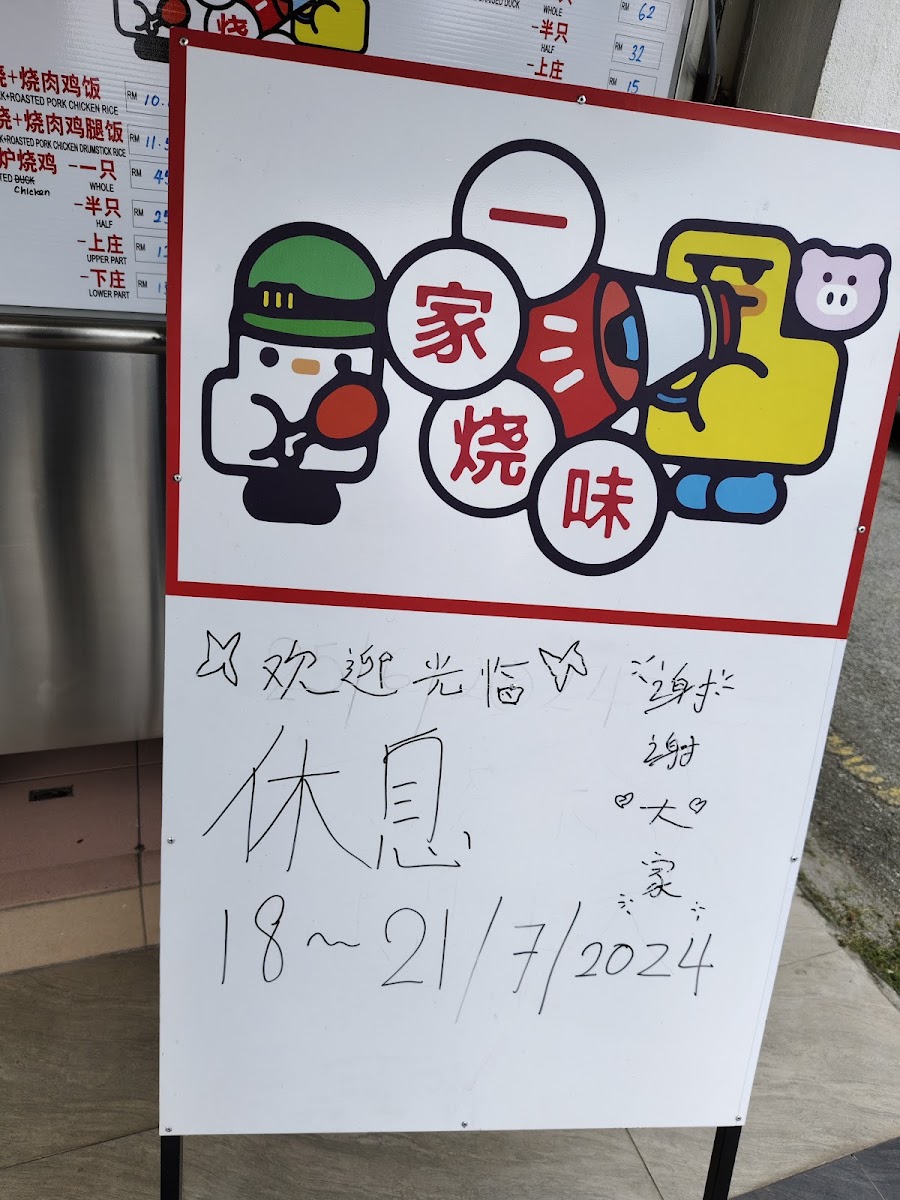 烧
WHOLE
RM 62
-半只
HALF
RM 32
-上庄
RM 15
+烧肉鸡饭
+ROASTED PORK CHICKEN RICE
RM 10.
+烧肉鸡腿饭
+ROASTED PORK CHICKEN DRUMSTICK RICE
RM 11.5
炉烧鸡 -一只
DUCK
WHOLE
Chicken
RM
-半只
HALF
RM
-上庄
UPPER PART
RM
-下庄
LOWER PART
RM
一
家
烧
味
欢迎光临
休息
18~21/7/2024
谢
谢
大
家